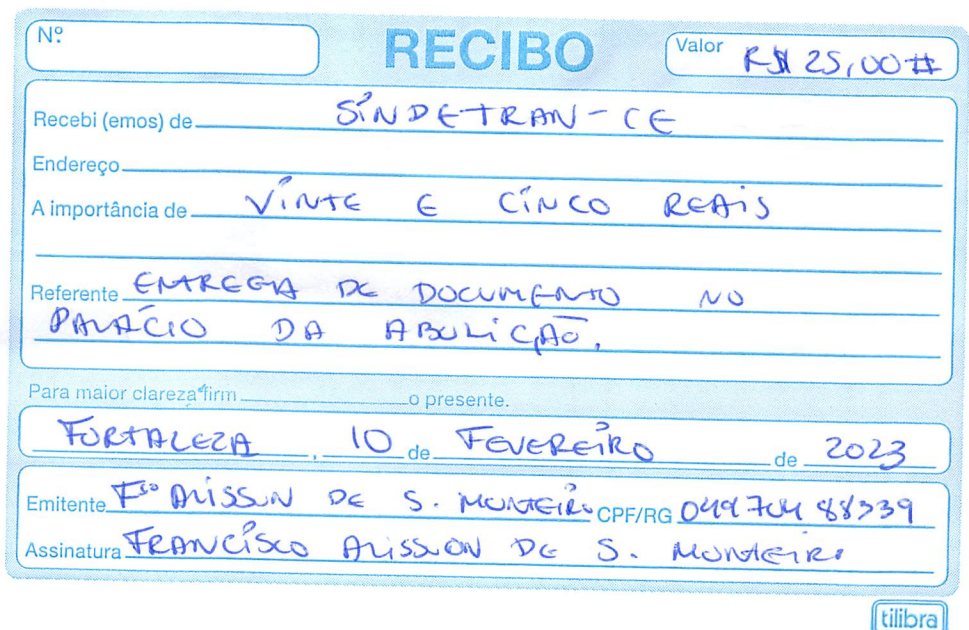 Nº RECIBO Valor R$ 25,00#
Recebi (emos) de SINDETRAN-CE
Endereço
A importância de VINTE E CINCO REAIS
Referente ENTREGA DE DOCUMENTO NO
PALÁCIO DA ABOLIÇÃO.
Para maior clareza firm o presente.
FORTALEZA, 10 de FEVEREIRO de 2023
Emitente Fco ALISSON DE S. MONTEIRO CPF/RG
Assinatura FRANCISCO ALISSON DE S. MONTEIRO
tilibra